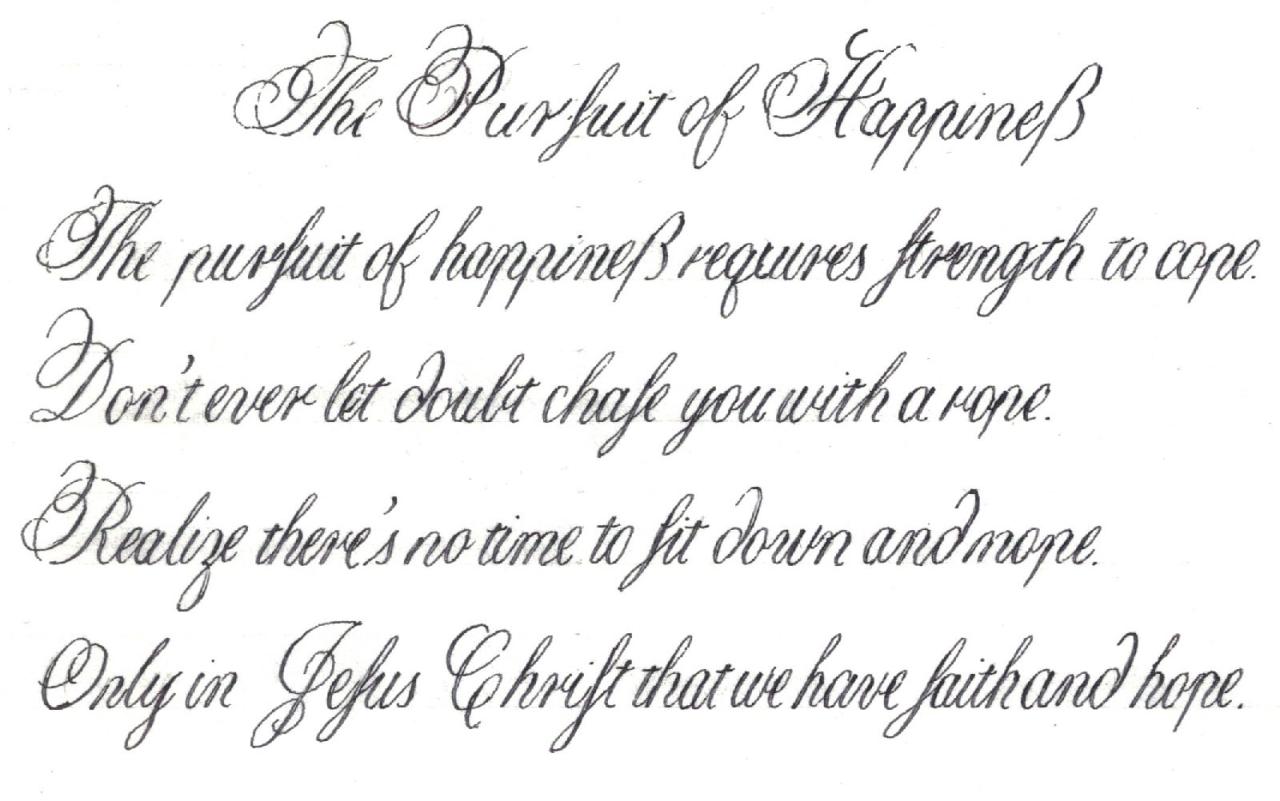 The Purſuit of Happineß
The purſuit of happineß requires ſtrength to cope.
Don't ever let doubt chaſe you with a rope.
Realize there's no time to ſit down and mope.
Only in Jeſus Chriſt that we have faith and hope.